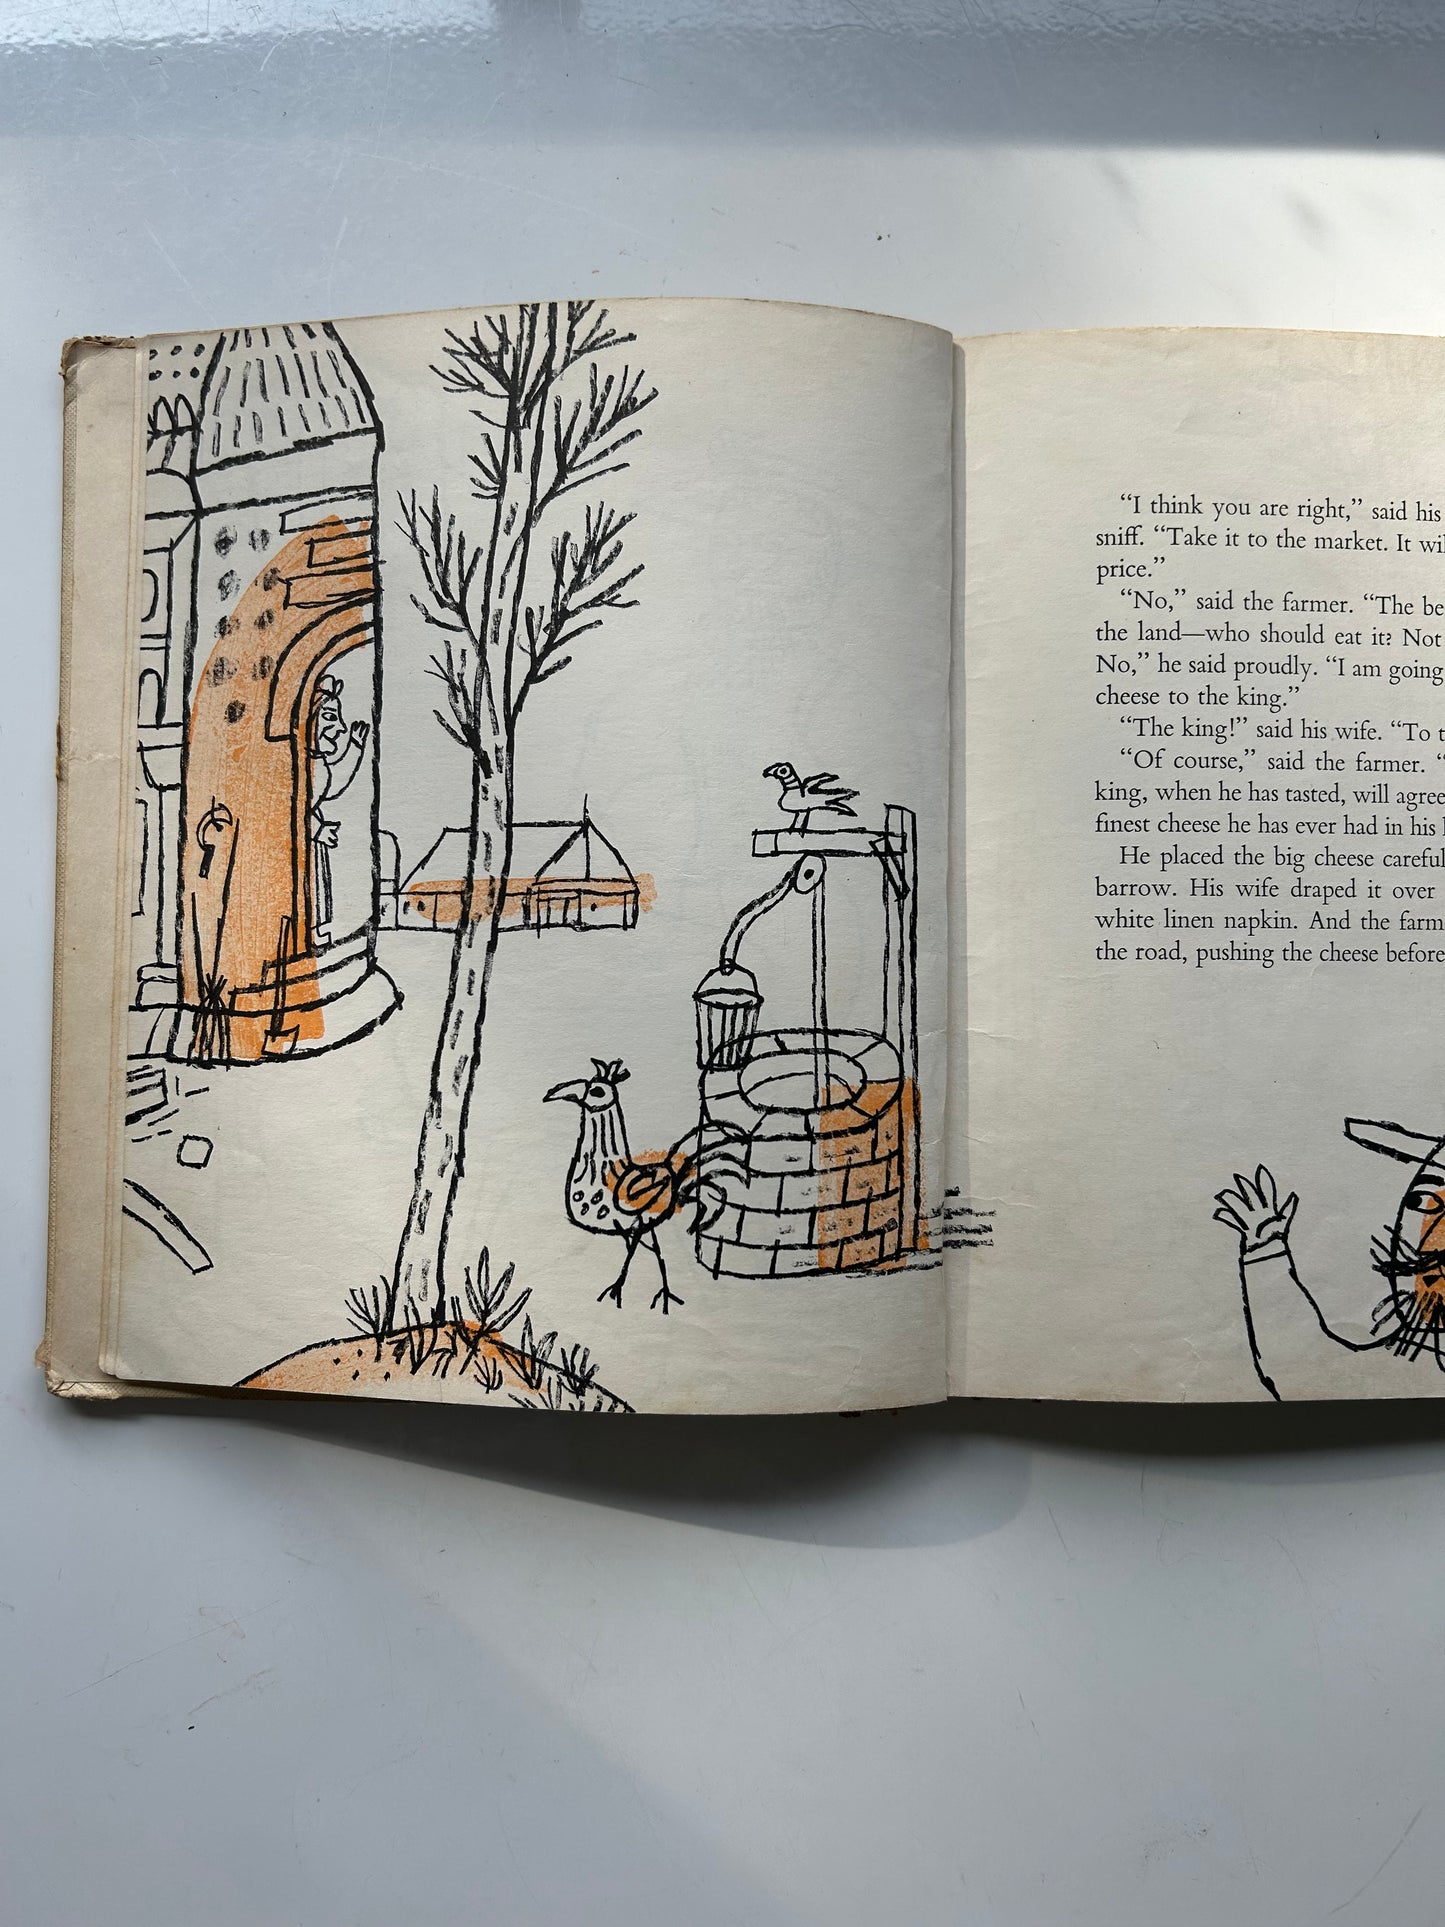 “I think you are right,” said his
sniff. “Take it to the market. It wil
price.”
“No,” said the farmer. “The be
the land—who should eat it? Not
No,” he said proudly. “I am going
cheese to the king.”
“The king!” said his wife. “To t
“Of course,” said the farmer. “
king, when he has tasted, will agree
finest cheese he has ever had in his
He placed the big cheese careful
barrow. His wife draped it over
white linen napkin. And the farm
the road, pushing the cheese before